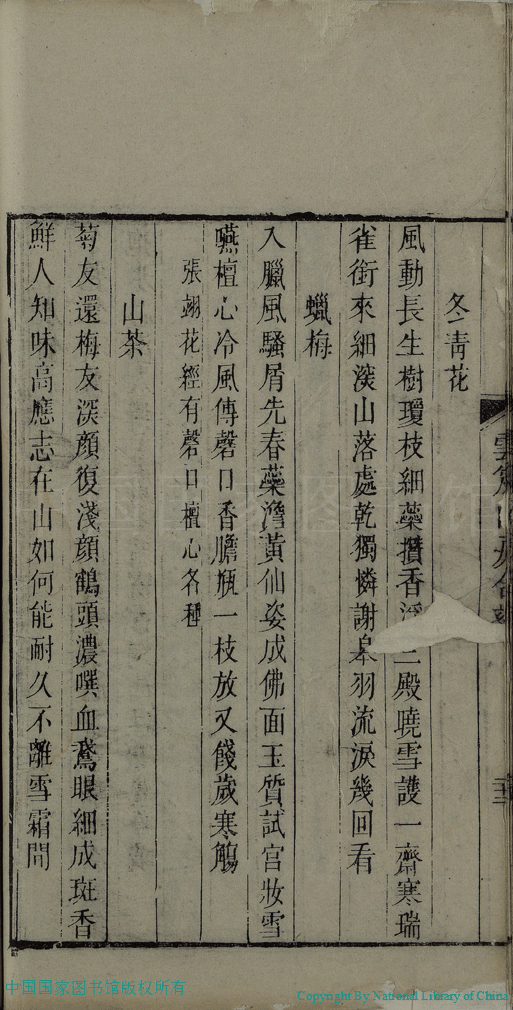 冬青花
風動長生樹瓊枝細蘂攢香浮三殿曉雪護一齋寒瑞
雀銜來細淡山落處乾獨憐謝皋羽流淚幾回看
蠟梅
入臘風騷屑先春蘂澹黃仙姿成佛面玉質試宮妝雪
嚥檀心冷風傳磬口香膽瓶一枝放又餞歲寒觴
張翊花經有磬口檀心各種
山茶
菊友還梅友深顏復淺顏鶴頭濃噀血鴦眼細成斑香
鮮人知味高應志在山如何能耐久不離雪霜間
中国国家图书馆版权所有
Copyright By National Library of China